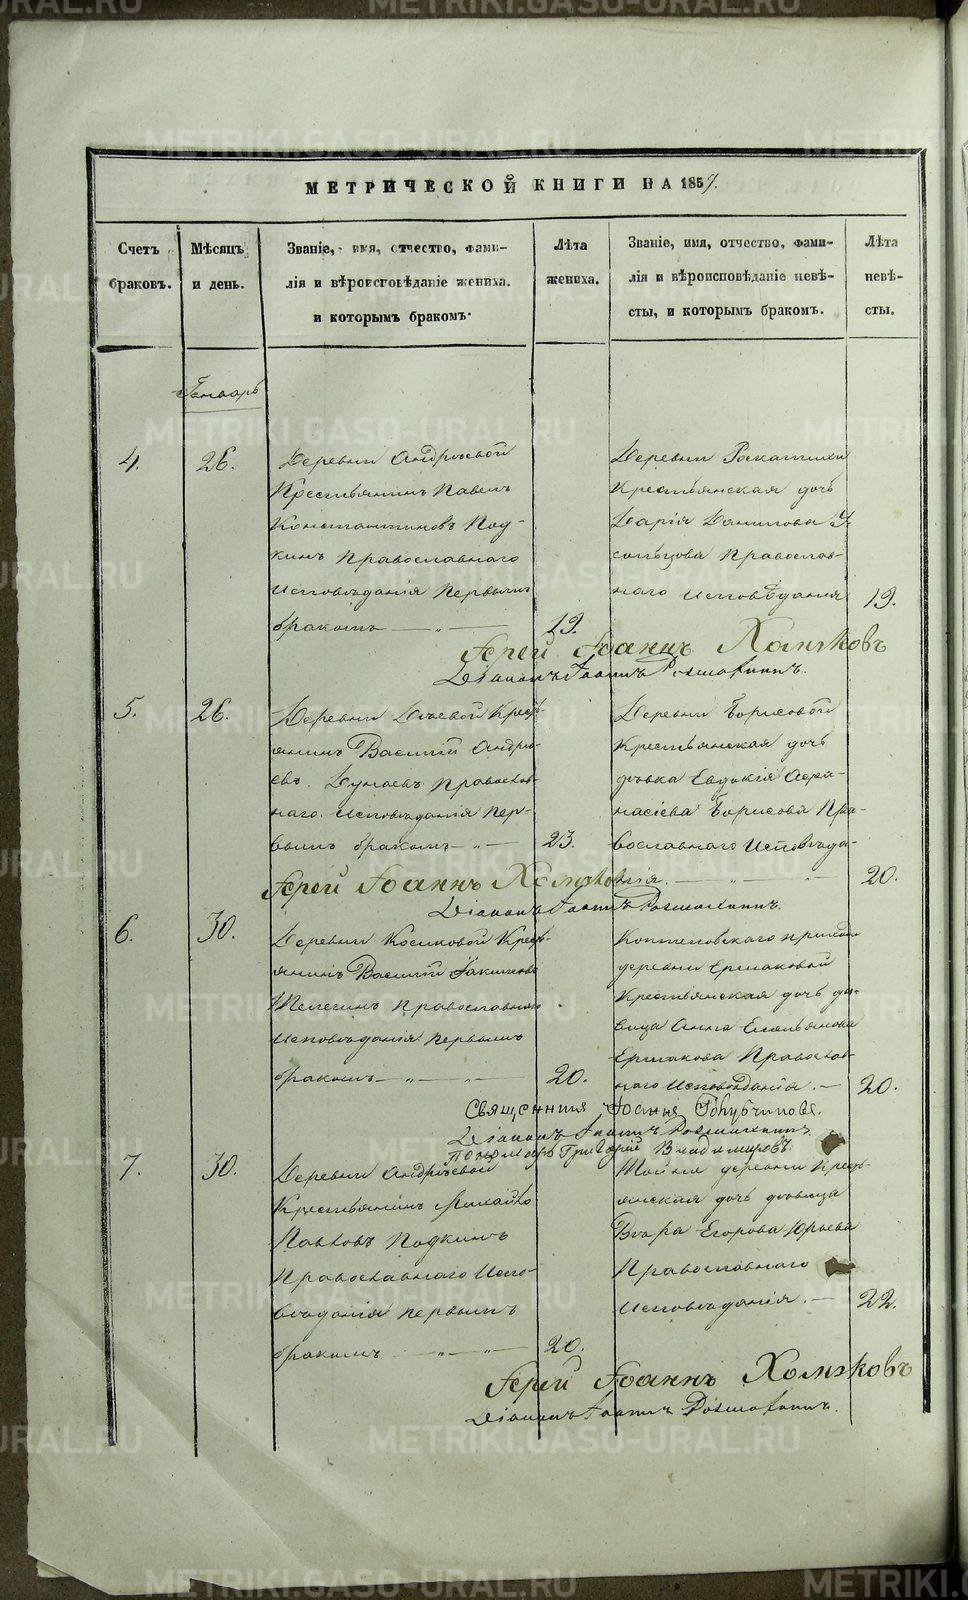 МЕТРИЧЕСКОЙ КНИГИ НА 1857.
Счетъ браковъ.
Мѣсяцъ и день.
Званіе, имя, отчество, фами-
лія и вѣроисповѣданіе жениха.
и которымъ бракомъ.
Лѣта жениха.
Званіе, имя, отчество, фами-
лія и вѣроисповѣданіе невѣ-
сты, и которымъ бракомъ.
Лѣта невѣ-
сты.
Генварь
4.
26.
Деревни Андреевой
Крестьянинъ Павелъ
Константиновъ Под-
кинъ Православнаго
Исповѣданія первымъ
бракомъ — „ —
19.
Деревни
Крестьянская дочь
Дарія Данилова У
сольцова Православ-
наго Исповѣданія
19.
Іерей Іоаннъ Хомяковъ
Діаконъ Іоаннъ
5.
26.
Деревни Дѣевой Крест
янинъ Василій Андре-
евъ Дунаевъ Православ-
наго Исповѣданія пер-
вымъ бракомъ — „ —
23.
Деревни Борисовой
Крестьянская дочь
дѣвка Евдокія Афа-
насіева Борисова Пра-
вославнаго Исповѣда-
нія. — „ —
20.
Іерей Іоаннъ Хомяковъ
Діаконъ Іоаннъ
6.
30.
Деревни Косиковой Крест-
янинъ Василій
Телегинъ Православнаго
Исповѣданія первымъ
бракомъ — „ — „ —
20.
Коптеловскаго прихода
деревни Ермаковой
Крестьянская дочь дѣ-
вица Анна Емельянова
Ермакова Православ-
наго Исповѣданія. —
20.
Священникъ Іоаннъ
Діаконъ Іоаннъ
Пономарь Григорій Владимировъ.
7.
30.
Деревни Андреевой
Крестьянинъ Михайло
Павловъ Подкинъ
Православнаго Испо-
вѣданія первымъ
бракомъ — „ — „ —
20.
Тойже деревни Крест-
янская дочь дѣвица
Вѣра Егорова Юрьева
Православнаго
Исповѣданія. —
22.
Іерей Іоаннъ Хомяковъ
Діаконъ Іоаннъ
METRIKI.GASO-URAL.RU